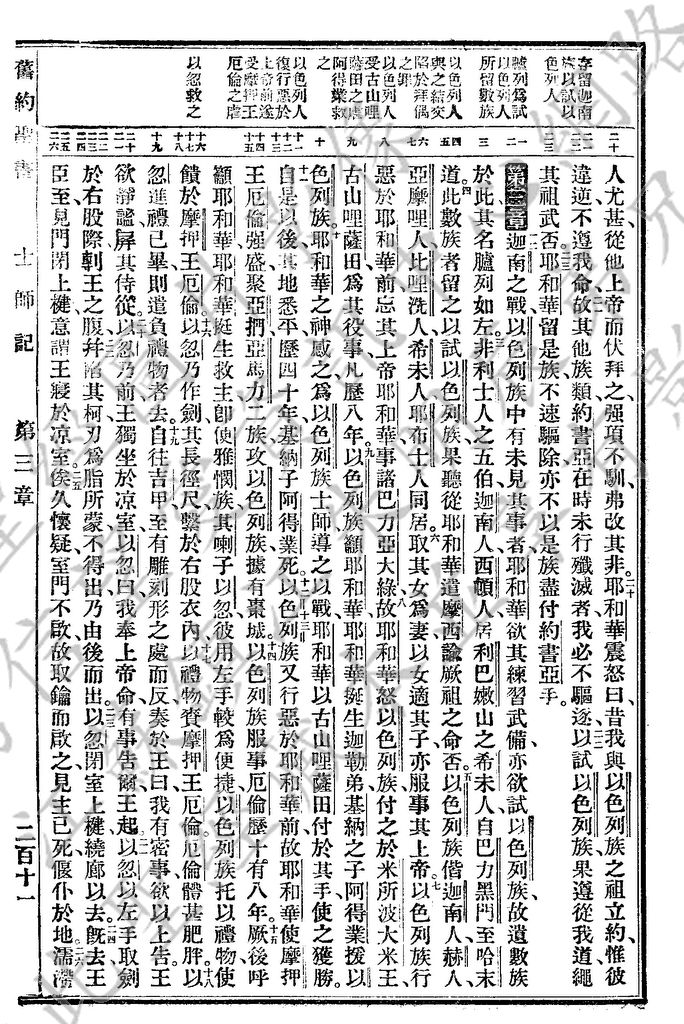 人尤甚從他上帝而伏拜之强項不馴弗改其非二十耶和華震怒曰昔我與以色列族之祖立約惟彼
違逆不遵我命二一故其他族類約書亞在時未行殲滅者我必不驅逐二二以試以色列族果遵從我道繩
其祖武否二三耶和華留是族不速驅除亦不以是族盡付約書亞手
第三章迦南之戰以色列族中有未見其事者耶和華欲其練習武備亦欲試以色列族故遺數族
於此其名臚列如左非利士人之五伯迦南人西頓人居利巴嫩山之希未人自巴力黑門至哈末
道四此數族者留之以試以色列族果聽從耶和華遣摩西諭厥祖之命否五以色列族偕迦南人赫人
亞摩哩人比哩洗人希未人耶布士人同居六取其女爲妻以女適其子亦服事其上帝七以色列族行
惡於耶和華前忘其上帝耶和華事諸巴力亞大綠八故耶和華怒以色列族付之於米所波大米王
古山哩薩田爲其役事凡歷八年九以色列族籲耶和華耶和華挺生迦勒弟基納之子阿得業援以
色列族十耶和華之神感之爲以色列族士師導之以戰耶和華以古山哩薩田付於其手使之獲勝
十一自是以後其地悉平歷四十年基納子阿得業死十二以色列族又行惡於耶和華前故耶和華使摩押
王厄倫强盛十三聚亞捫亞馬力二族攻以色列族據有棗城十四以色列族服事厄倫歷十有八年十五厥後呼
籲耶和華耶和華挺生救主卽便雅憫族其喇子以忽彼用左手較爲便捷以色列族托以禮物使
饋於摩押王厄倫十六以忽乃作劍其長徑尺繫於右股衣內十七以禮物賚摩押王厄倫厄倫體甚肥胖十八以
忽進禮已畢則遣負禮物者去十九自往吉甲至有雕刻形之處而反奏於王曰我有密事欲以上告王
欲靜謐屏其侍從二十以忽乃前王獨坐於凉室以忽曰我奉上帝命有事告爾王起二一以忽以左手取劍
於右股際刺王之腹二二幷陷其柯刃爲脂所蒙不得出乃由後而出二三以忽閉室上楗繞廊以去二四旣去王
臣至見門閉上楗意謂王寢於凉室二五俟久懷疑室門不啟故取鑰而啟之見主已死偃仆於地二六濡滯
存留迦南
族以試以
色列人
臚列爲試
以色列人
所留數族
以色列人
與之結交
陷於拜偶
之罪
以色列人
受古山哩
薩田之虐
阿得業救
之
以色列人
復行惡於
上帝前遂
受摩押王
厄倫之虐
以忽救之
二十
二一
二二
二三
一
二
三
四
五
六
七
八
九
十
十一
十二
十三
十四
十五
十六
十七
十八
十九
二十
二一
二二
二三
二四
二五
二六
舊約聖書 士師記 第三章 二百十一